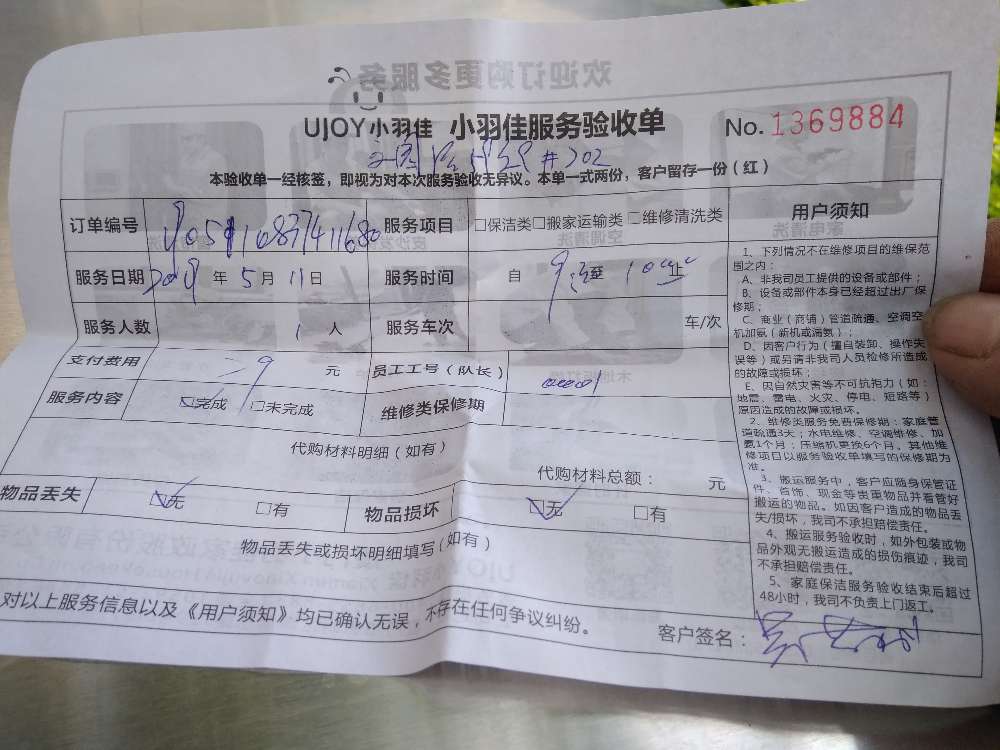 欢迎订购更多服务
UJOY小羽佳 小羽佳服务验收单 No. 1369884
本验收单一经核签，即视为对本次服务验收无异议。本单一式两份，客户留存一份（红）
订单编号 服务项目 □保洁类□搬家运输类□维修清洗类
服务日期 2019 年 5 月 11 日 服务时间 自 9 至 10 止
服务人数 1 人 服务车次 车/次
支付费用 元 员工工号（队长） 00001
服务内容 ☑完成 □未完成 维修类保修期
代购材料明细（如有）
代购材料总额： 元
物品丢失 ☑无 □有 物品损坏 ☑无 □有
物品丢失或损坏明细填写（如有）
对以上服务信息以及《用户须知》均已确认无误，不存在任何争议纠纷。
客户签名：
用户须知
1、下列情况不在维修项目的维保范
围之内：
A、非我司员工提供的设备或部件；
B、设备或部件本身已经超过出厂保
修期；
C、商业（商铺）管道疏通、空调空
机加氨（新机或漏氨）；
D、因客户行为（擅自装卸、操作失
误等）或另请非我司人员检修所造成
的故障或损坏；
E、因自然灾害等不可抗拒力（如：
地震、雷电、火灾、停电、短路等）
原因造成的故障或损坏。
2、维修类服务免费保修期：家庭管
道疏通3天；水电维修、空调维修、加
氨1个月；压缩机更换6个月。其他维
修项目以服务验收单填写的保修期为
准。
3、搬运服务中，客户应随身保管证
件、首饰、现金等贵重物品并看管好
搬运的物品。如因客户造成的物品丢
失/损坏，我司不承担赔偿责任。
4、搬运服务验收时，如外包装或物
品外观无搬运造成的损伤痕迹，我司
不承担赔偿责任。
5、家庭保洁服务验收结束后超过
48小时，我司不负责上门返工。